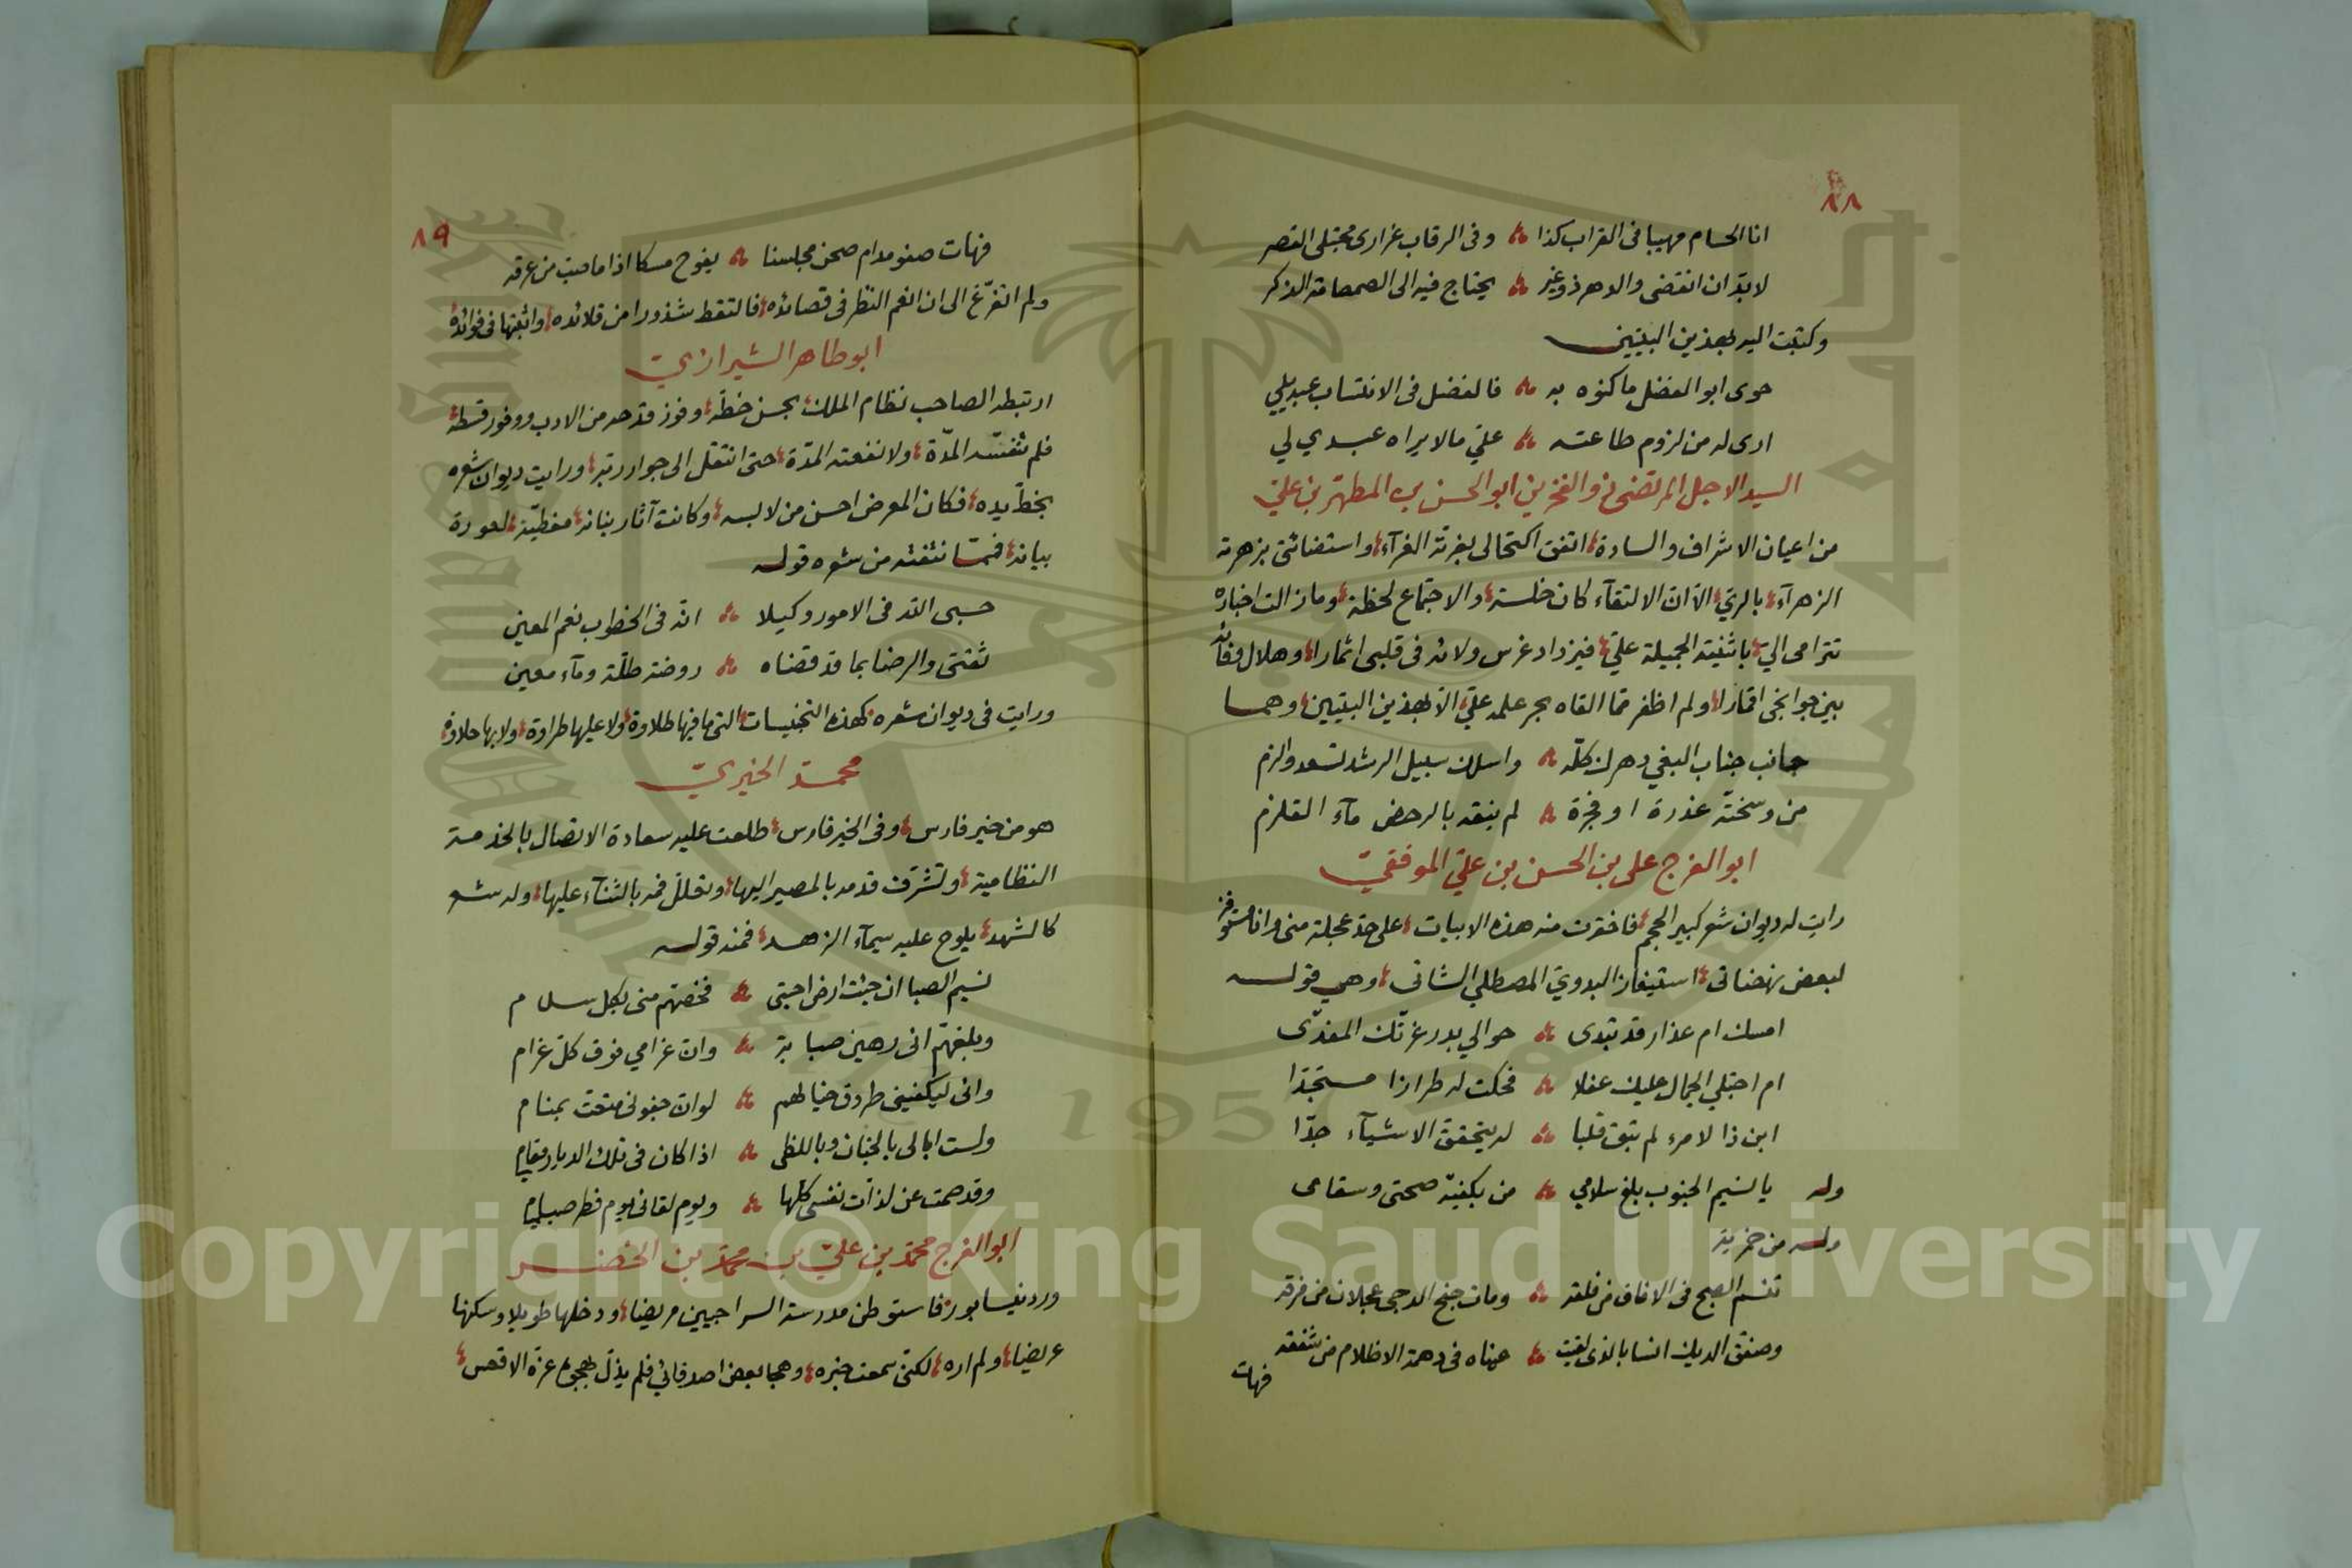 ٨٨
انا الحسام مهيبا فى القراب كذا وفى الرقاب غرارى مجتلى القصر
لابدّ ان انتضى والدهر ذو غير يحتاج فيه الى الصمصامة الذكر
وكتبت اليه بهذين البيتين
حوى ابو الفضل ما كنوه به فالفضل فى الانتساب عبديلي
ارى له من لزوم طاعته عليّ مالا يراه عبدي لي
السيد الاجل المرتضى ذو الفخرين ابو الحسن بن المطهّر بن عليّ
من اعيان الاشراف والسادة اتفق اكتحالى بغرته الغرآء واستضائتى بزهرته
الزهرآء بالريّ الّا انّ الالتقآء كان خلسة والاجتماع لحظة وما زالت اخباره
تترامى اليّ باثنيته الجميلة عليّ فيزداد غرس ولائه فى قلبى اثمارا وهلال وفائه
بين جوانحى اقمارا ولم اظفر ممّا القاه بحر علمه عليّ الّا بهذين البيتين وهما
جانب جناب البغي دهرك كلّه واسلك سبيل الرشد تسعد والزم
من وسخته غدرة او فجرة لم ينقه بالرحض مآء القلزم
ابو الفرج على بن الحسن بن عليّ الموفقيّ
رايت له ديوان شعر كبير الحجم فاخترت منه هذه الابيات على حدّ عجلة منى وانا مستوفز
لبعض نهضاتى استيفاز البدويّ المصطلي الشاتى وهي قوله
امسك ام عذار قد تبدى حوالي بدر غرّتك المفدّى
ام اجتلي الجمال عليك غفلا فحكت له طرازا مستجدّا
ابن ذا لامرء لم تبق قلبا له يتحقق الاشيآء جدّا
وله يا نسيم الجنوب بلغ سلامي من بكفيّه صحتى وسقامى
وله من خمرية
تنسم الصبح فى الافاق من فلقه ومات جنح الدجى عجلان من فرقه
وصفق الديك انسا بالذى لقيت عيناه فى دهمة الاظلام من شفقه
فهات
٨٩
فهات صفو مدام صحن مجلسنا يفوح مسكا اذا ما صبت من عرقه
ولم اتفرّغ الى ان انعم النظر فى قصائده فالتقط شذورا من قلائده واثبتها فى فوائده
ابو طاهر الشيرازيّ
ارتبطه الصاحب نظام الملك بحسن خطّه وفوز قدحه من الادب ووفور قسطه
فلم تنفسّه المدّة ولا نفعته المدّة حتى انتقل الى جوار ربّه ورايت ديوان شعره
بخطّ يده فكان المعرض احسن من لابسه وكانت آثار بنانه مغطيّة لعورة
بيانه فممّا نتفته من شعره قوله
حسبى اللّه فى الامور وكيلا انّه فى الخطوب نعم المعين
ثقتى والرضا بما قد قضاه روضة طلّة ومآء معين
ورايت فى ديوان شعره كهذه التجنيسات التى ما فيها طلاوة ولا عليها طراوة ولا بها حلاوة
محمد الخبريّ
هو من خبر فارس وفى الخير فارس طلعت عليه سعادة الاتصال بالخدمة
النظامية وتشرّف قدمه بالمصير اليها وتحلل فمه بالثنآء عليها وله شعر
كالشهد يلوح عليه سيمآء الزهد فمنه قوله
نسيم الصبا ان جئت ارض احبتى فخصّهم منى بكل سلام
وبلغهّم انى رهين صبابة وان غرامي فوق كلّ غرام
وانى ليكفينى طروق خيالهم لو انّ جفونى متعت بمنام
ولست ابالى بالجنان وباللظى اذا كان فى تلك الديار مقامي
وقد صمت عن لذّات نفسى كلّها ويوم لقائى يوم فطر صيامي
ابو الفرج محمّد بن عليّ بن محمّد بن الخضر
ورد نيسابور فاستوطن مدرسة السراجيين مريضا ودخلها طويلا وسكنها
عريضا ولم اره لكنّى سمعت خبره وهجا بعض اصدقائي فلم يذلّ بهجوه عزّة الاقعس
Copyright © King Saud University
1957